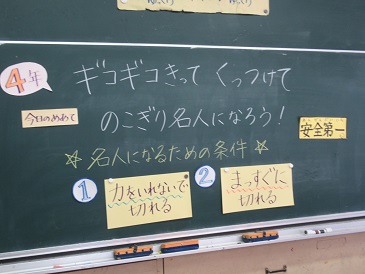 4年
ギコギコきって くっつけて
今日のめあて
のこぎり名人になろう!
安全第一
☆名人になるための条件☆
1
力をいれないで
切れる
2
まっすぐに
切れる